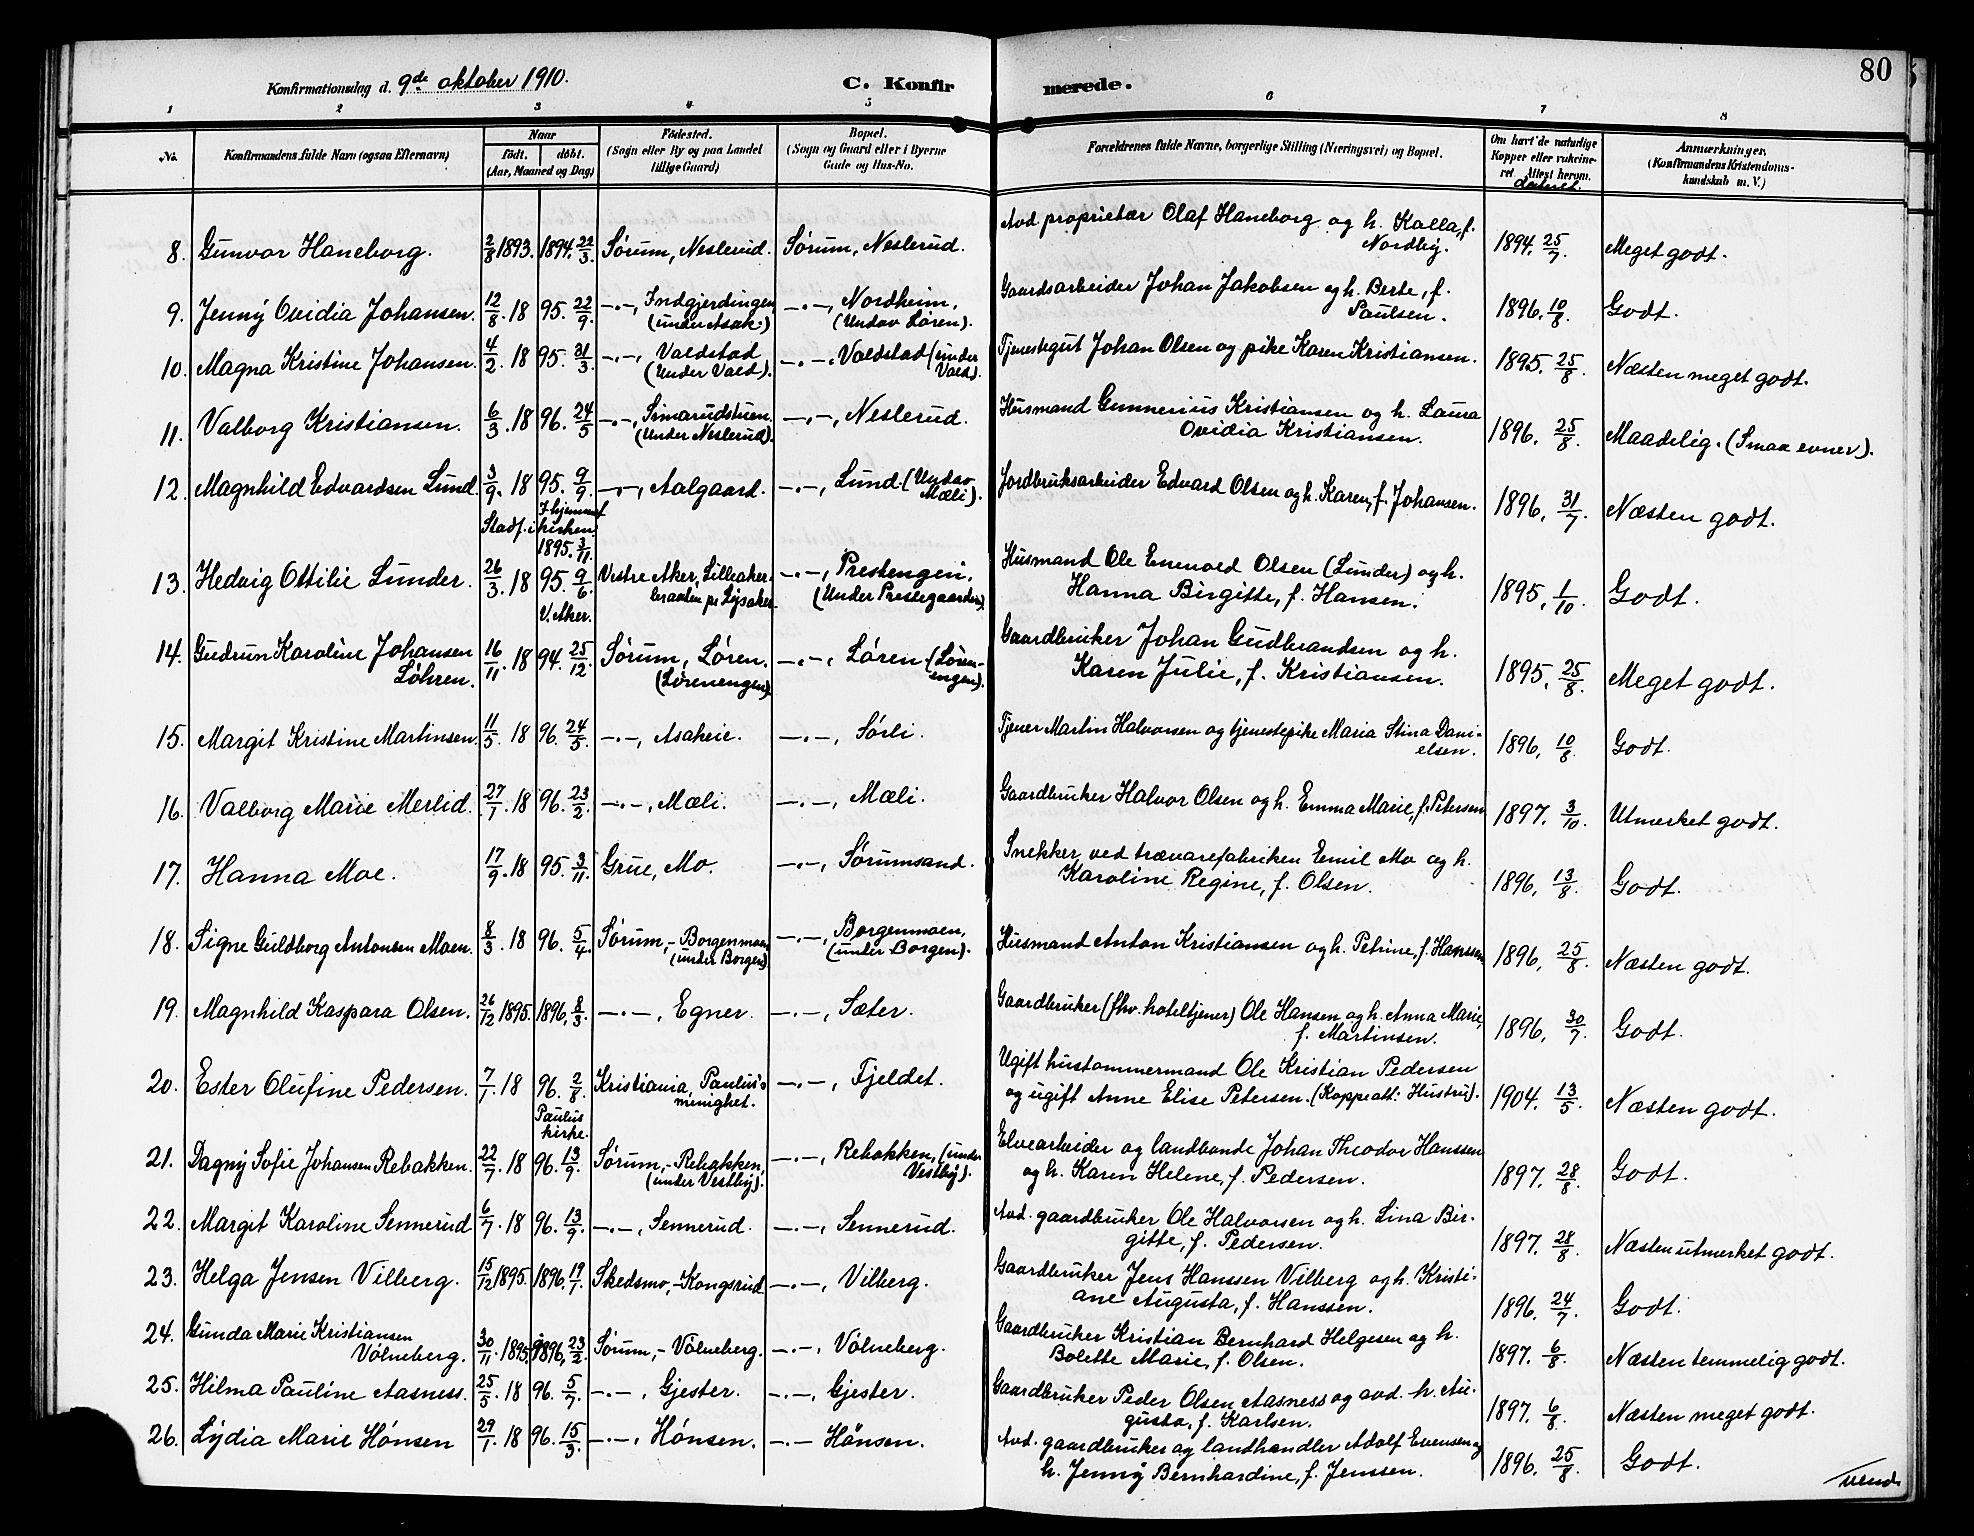 80
Konfirmationsdag d. 9de oktober 1910.
C. Konfirmerede.
1 2 3 4 5 6 7 8
No. | Konfirmandens fulde Navn (ogsaa Efternavn) | Naar født. | døbt. (Aar, Maaned og Dag) | Fødested. (Sogn eller By og paa Landet tillige Gaard) | Bopæl. (Sogn og Gaard eller i Byerne Gade og Hus-No. | Forældrenes fulde Navne, borgerlige Stilling (Næringsvei) og Bopæl. | Om havt de naturlige Kopper eller vakcineret. Attest herom. dateret. | Anmærkninger. (Konfirmandens Kristendomskundskab m. V.)
8. Gunvor Haneborg. 2/8 1893. 1894. 22/3. Sørum, Neslerud. Sørum, Neslerud. Avd. proprietær Olaf Haneborg og h. Kalla, f. Nordby. 1894. 25/7. Meget godt.
9. Jenny Ovidia Johansen. 12/8. 18 95. 22/9. —.—, Indgjerdingen (under Asak.) —.—, Nordheim, (Undav Løren). Gaardsarbeider Johan Jakobsen og h. Berte, f. Paulsen. 1896. 10/8. Godt.
10. Magna Kristine Johansen. 4/2. 18 95. 31/3. —.—, Valdstad (Under Vald). —.—. Valdstad (under Vald). Tjenestegut Johan Olsen og pike Karen Kristiansen. 1895. 25/8. Næsten meget godt.
11. Valborg Kristiansen. 6/3. 18 96. 24/5 —.—, Simarudstuen (Under Neslerud). —.—, Neslerud. Husmand Gunnerius Kristiansen og h. Laura Ovidia Kristiansen. 1896. 25/8. Maadelig. (Smaa evner).
12. Magnhild Edvardsen Lund. 3/9. 18 95. 9/9. I hjemmet Stadf. i kirken 1895. 3/11. —.—, Aalgaard. —.—, Lund (Undav Mæli). Jordbruksarbeider Edvard Olsen og h. Karen, f. Johansen. 1896. 31/7. Næsten godt.
13. Hedvig Ottilie Lunder. 26/3. 18 95. 9/6. V. Aker. Vestre Aker, Lilleaker- pr Lysaker. —.—, Prestengen, (Under Prestegaarden). Husmand Ole Enevold Olsen (Lunder) og h. Hanna Birgitte, f. Hansen. 1895. 1/10. Godt.
14. Gudrun Karoline Johansen Løhren. 16/11. 18 94. 25/12. Sørum, Løren. (Lørenengen) —.—. Løren (Lørenengen). Gaardbruker Johan Gudbrandsen og h. Karen Julie, f. Kristiansen. 1895. 25/8. Meget godt.
15. Margit Kristine Martinsen. 11/5. 18 96. 24/5. —.—, Asakeie. —.—, Sørli. Tjener Martin Halvorsen og tjenestepike Maria Stina Danielsen. 1896. 10/8. Godt.
16. Valborg Marie Merlid. 27/1. 18 96. 23/2. —.—, Mæli. —.—, Mæli. Gaardbruker Halvor Olsen og h. Emma Marie, f. Petersen 1897. 3/10. Utmerket godt.
17. Hanna Moe. 17/9. 18 95. 3/11. Grue, Mo. —.—, Sørumsand. Snekker ved trævarefabriken Emil Mo og h. Karoline Regine, f. Olsen. 1896. 13/8. Godt.
18. Signe Guldborg Antonsen Moen. 8/3. 18 96. 5/4. Sørum, - Borgenmoen (under Borgen) —.—, Borgenmoen, (under Borgen). Husmand Anton Kristiansen og h. Petrine, f. Hanssen 1896. 25/8. Næsten godt.
19. Magnhild Kaspara Olsen. 26/12 1895. 1896. 8/3. —.—, Egner. —.—, Sæter. Gaardbruker (fhv. hoteltjener) Ole Hansen og h. Anna Marie, f. Martinsen. 1896. 30/7. Godt.
20. Ester Olufine Pedersen. 7/1. 18 96. 2/8. Paulus kirke. Kristiania, Paulus's menighet. —.—, Fjeldet. Ugift hustømmermand Ole Kristian Pedersen og ugift Anne Elise Petersen. (Koppeatt: Hustru). 1904. 13/5. Næsten godt.
21. Dagny Sofie Johansen Rebakken. 22/7. 18 96. 13/9. Sørum, - Rebakken, (under Vestby). —.—, Rebakken, (under Vestby). Elvearbeider og landbonde Johan Theodor Hanssen og h. Karen Helene, f. Pedersen. 1897. 28/8. Godt.
22. Margit Karoline Sennerud 6/7. 18 96. 13/9. —.—, Sennerud. —.—, Sennerud. Avd. gaardbruker Ole Halvorsen og h. Lina Birgitte, f. Pedersen. 1897. 28/8. Næsten utmerket godt.
23. Helga Jensen Vilberg. 15/12 1895. 1896. 19/1. Skedsmo, - Kongsrud —.—, Vilberg. Gaardbruker Jens Hanssen Vilberg og h. Kristiane Augusta, f. Hanssen. 1896. 24/7. Godt.
24. Gunda Marie Kristiansen Vølneberg. 30/11. 1895. 1896. 23/2. Sørum, - Vølneberg. —.—. Vølneberg. Gaardbruker Kristian Bernhard Helgesen og h. Bolette Marie, f. Olsen. 1897. 6/8. Næsten temmelig godt.
25. Hilma Pauline Aasness. 25/5. 18 96. 5/7. —.—, Gjester. —.—, Gjester. Gaardbruker Peder Olsen Aasness og avd. h. Augusta, f. Karlsen. 1897. 6/8. Næsten meget godt.
26. Lydia Marie Hønsen 29/1. 18 96. 15/3. —.—, Hønsen. —.— Hønsen. Avd. gaardbruker og landhandler Adolf Evensen og h. Jenny Bernhardine, f. Jenssen. 1896. 25/8. Godt.
vend